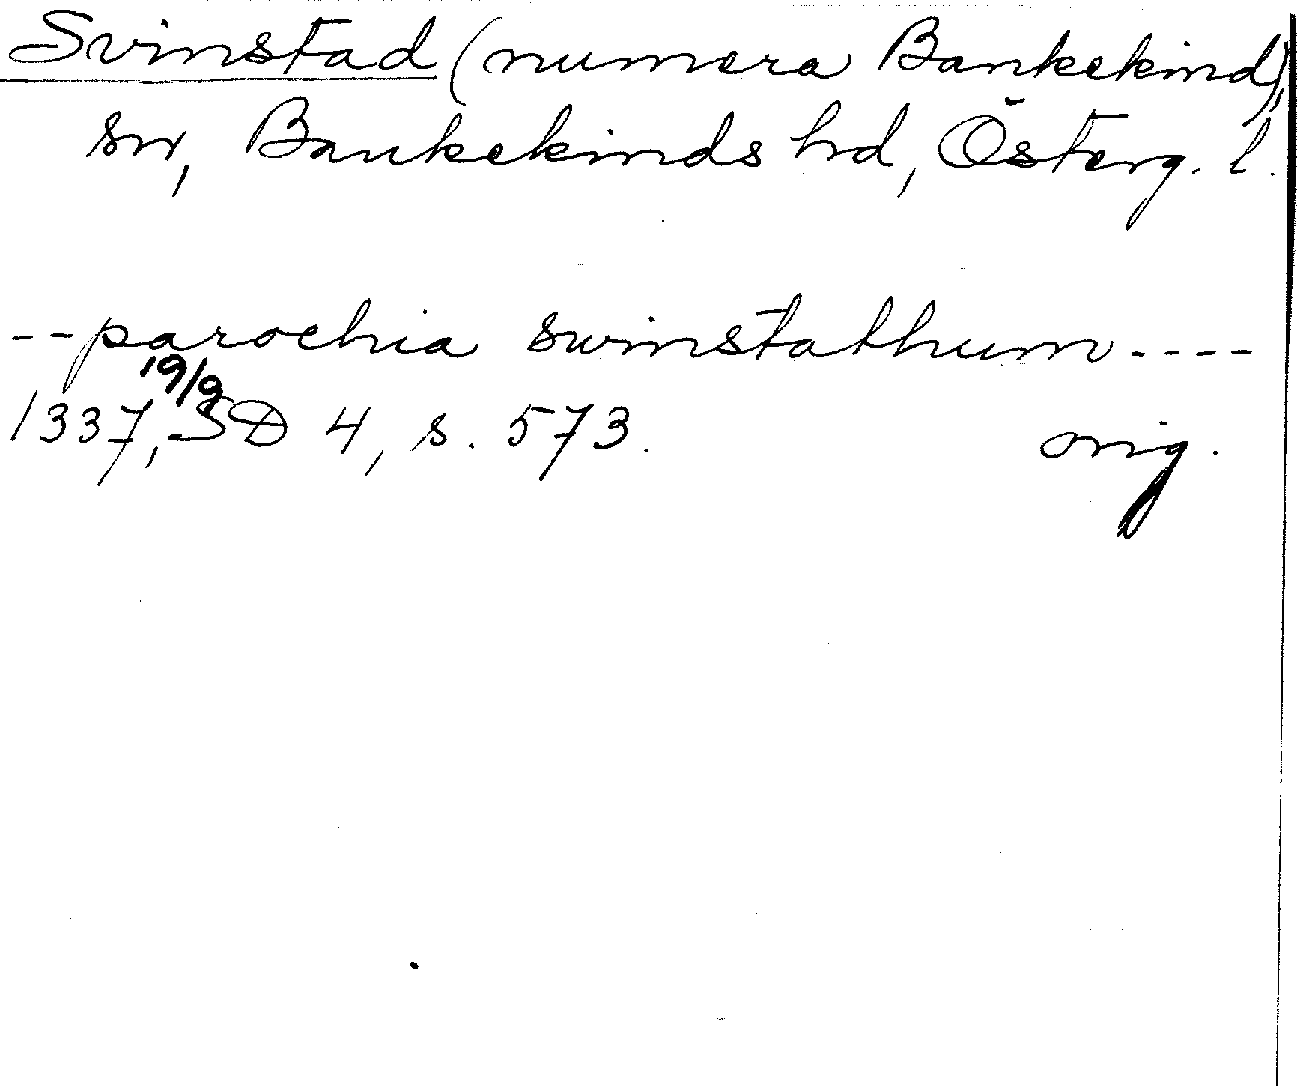 Svinstad (numera Bankekind),
sn, Bankekinds hd, Österg. l.
--parochia swinstathum----
19/9
1337, SD 4, s. 573. orig.